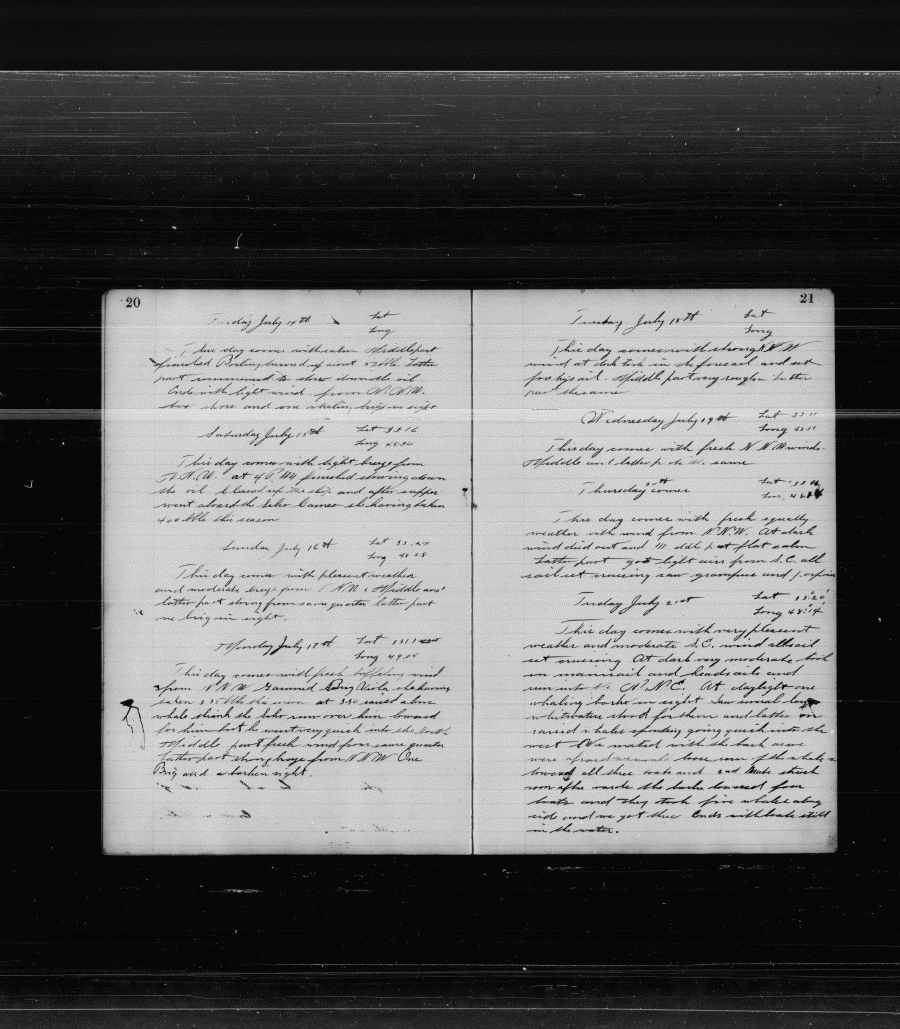 20
Friday July 14th Lat
Long
This day comes with calm Middle part
finished Boiling turned up about bbls Latter
part commenced to stow down the oil
Ends with light wind from N.N.W.
two shore and one whaling brig in sight
Saturday July 15th Lat 33 16
Long 48 34
This day comes with light breeze from
N.N.W. at 4 P.M. finished stowing down
the oil cleared up the ship and after supper
went aboard the she having taken
400 bbls this season
Sunday July 16th Lat 33
Long 48 28
This day comes with pleasant weather
and moderate breeze from NNW Middle and
latter part strong from same quarter latter part
one brig in sight.
Monday July 17th Lat
Long 49
This day comes with fresh wind
from NNW Gammed Brig Viola she having
taken bbls this season at raised a lone
whale think the run over him lowered
for him but he went very quick into the North
Middle part fresh wind from same quarter
Latter part strong breeze from NNW One
Brig and a barken sight.
21
Tuesday July 18th Lat
Long
This day comes with strong NNW
wind at dark took in the foresail and set
fore trysail. Middle part very rough. Latter
part the same
Wednesday July 19th Lat 33 11
Long 48 11
This day comes with fresh NNW winds.
Middle and latter part the same
Thursday 20th comes Lat 33
Long 48
This day comes with fresh squally
weather with wind from N.N.W. At dark
wind died out and Middle part flat calm
Latter part got light airs from S.E. all
sail set cruising saw grampus and porpoise
Friday July 21st Lat 33:20
Long 48:14
This day comes with very pleasant
weather and moderate S.E. wind all sail
set cruising At dark very moderate took
in mainsail and headsails and
run into the N.N.E. At daylight one
whaling barke in sight Saw several
whitewaters stood for them and latter on
raised whales spouting going quick into the
west We mated with the bark as we
were afraid would loose run of the whales
lowered all three boats and 2nd Mate struck
soon after wards the barke lowered four
boats and they took five whales along
side and we got three Ends with boats still
in the water.